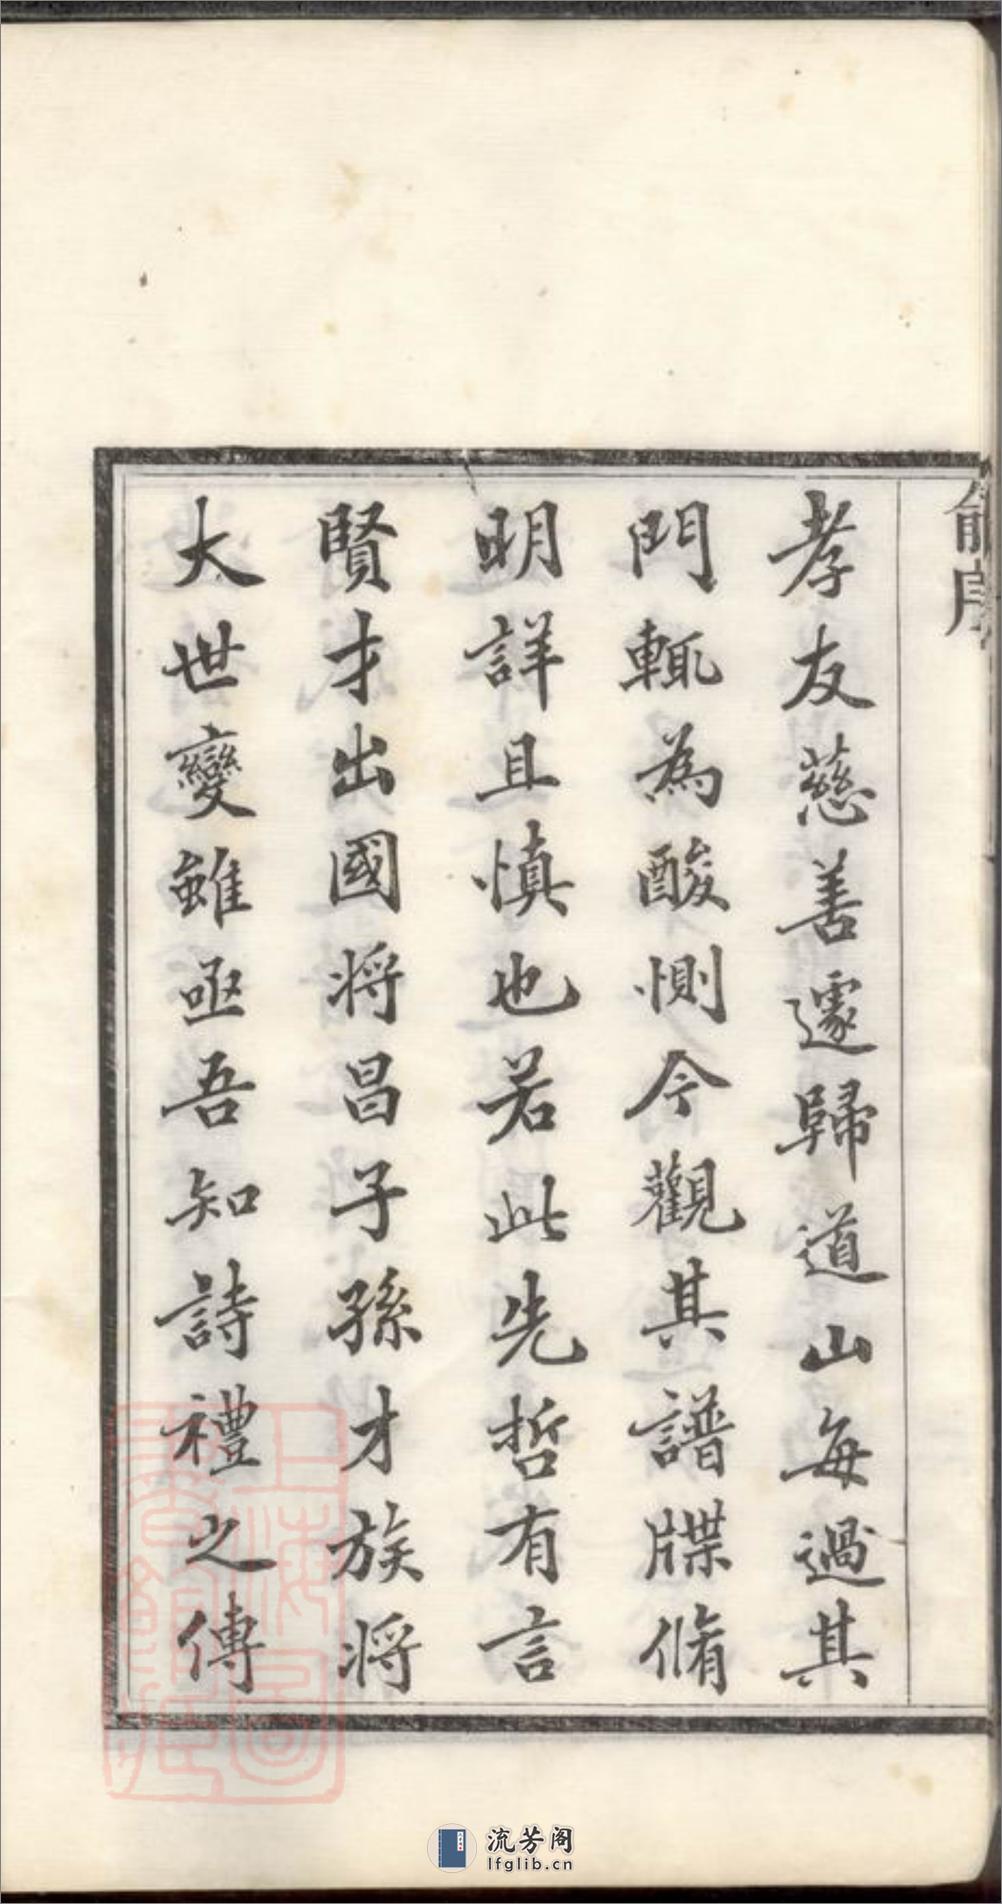 俞序
孝友慈善遽歸道山每過其
門輒為酸惻今觀其譜牒脩
明詳且慎也若此先哲有言
賢才出國將昌子孫才族將
大世變雖亟吾知詩禮之傳
上海圖書館藏
流芳阁
lfglib.cn